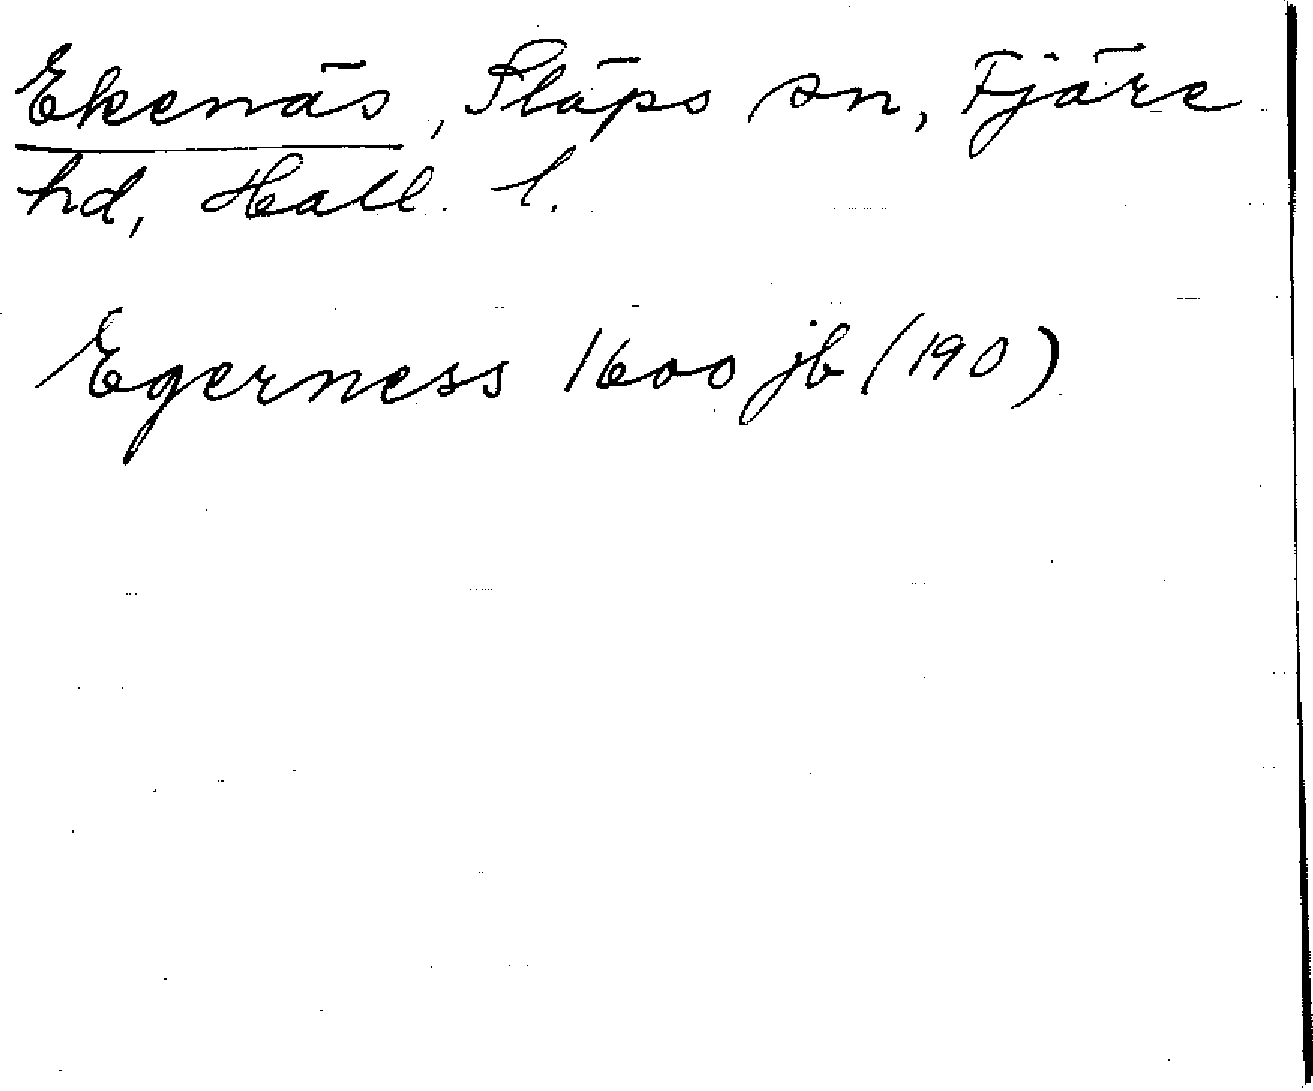 Ekenäs, Släps sn, Fjäre
hd, Hall. l.
Egerness 1600 jb (190)